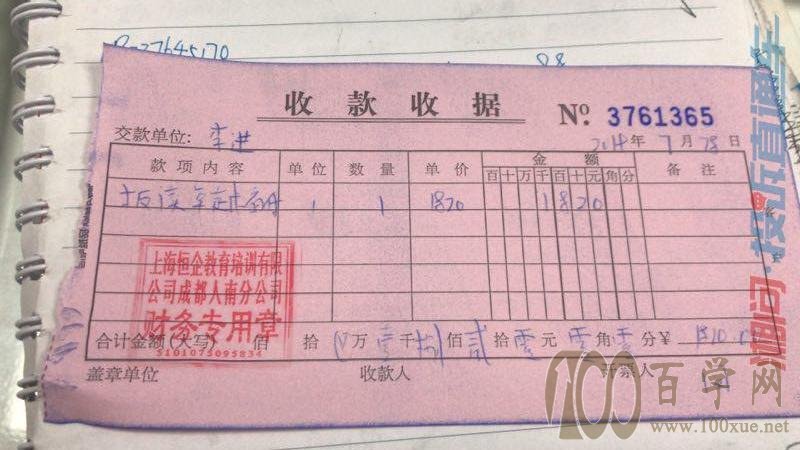 收款收据 № 3761365
交款单位: 李进 2014年7月28日
款项内容 单位 数量 单价 金额 备注
百十万千百十元角分
1 1 1820 1820
上海恒企教育培训有限
公司成都人南分公司
财务专用章
5101075095834
合计金额(大写) 佰 拾 万壹仟捌佰贰拾零元零角零分¥
盖章单位 收款人 开票人
投诉直通车
100百学网
www.100xue.net